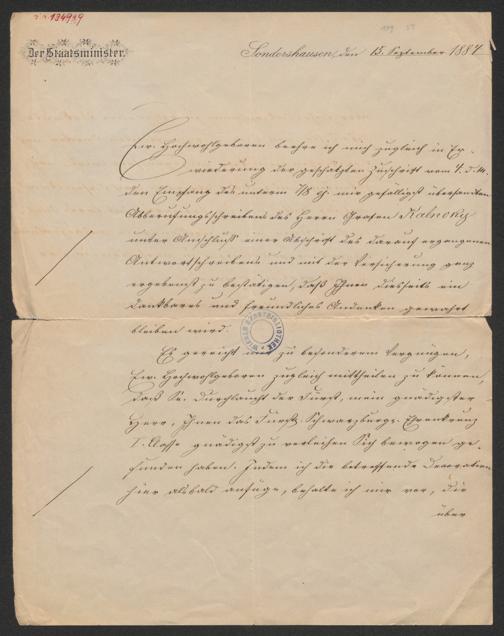 134949
Der Staatsminister.
Sondershausen, den 15. September 1887
Ew. Hochwohlgeboren beehre ich mich zugleich in Er-
wiederung der geschätzten Zuschrift vom 4. d. M.
den Empfang des unterm 7/8 mir gefälligst übersandten
Abberufungsschreibens des Herrn Grafen Kalnoky
unter Anschluß einer Abschrift des darauf ergangenen
Antwortschreibens und mit der Versicherung ganz
ergebenst zu bestätigen, daß Ihnen diesseits ein
dankbares und freundliches Andenken gewahrt
bleiben wird.
Es gereicht mir zu besonderem Vergnügen,
Ew. Hochwohlgeboren zugleich mittheilen zu können,
daß Se. Durchlaucht der Fürst, mein gnädigster
Herr, Ihnen das Fürstl. Schwarzburg. Ehrenkreuz
I. Classe gnädigst zu verleihen Sich bewogen ge-
funden haben. Indem ich die betreffende Decoration
hier alsbald anfüge, behalte ich mir vor, die
über